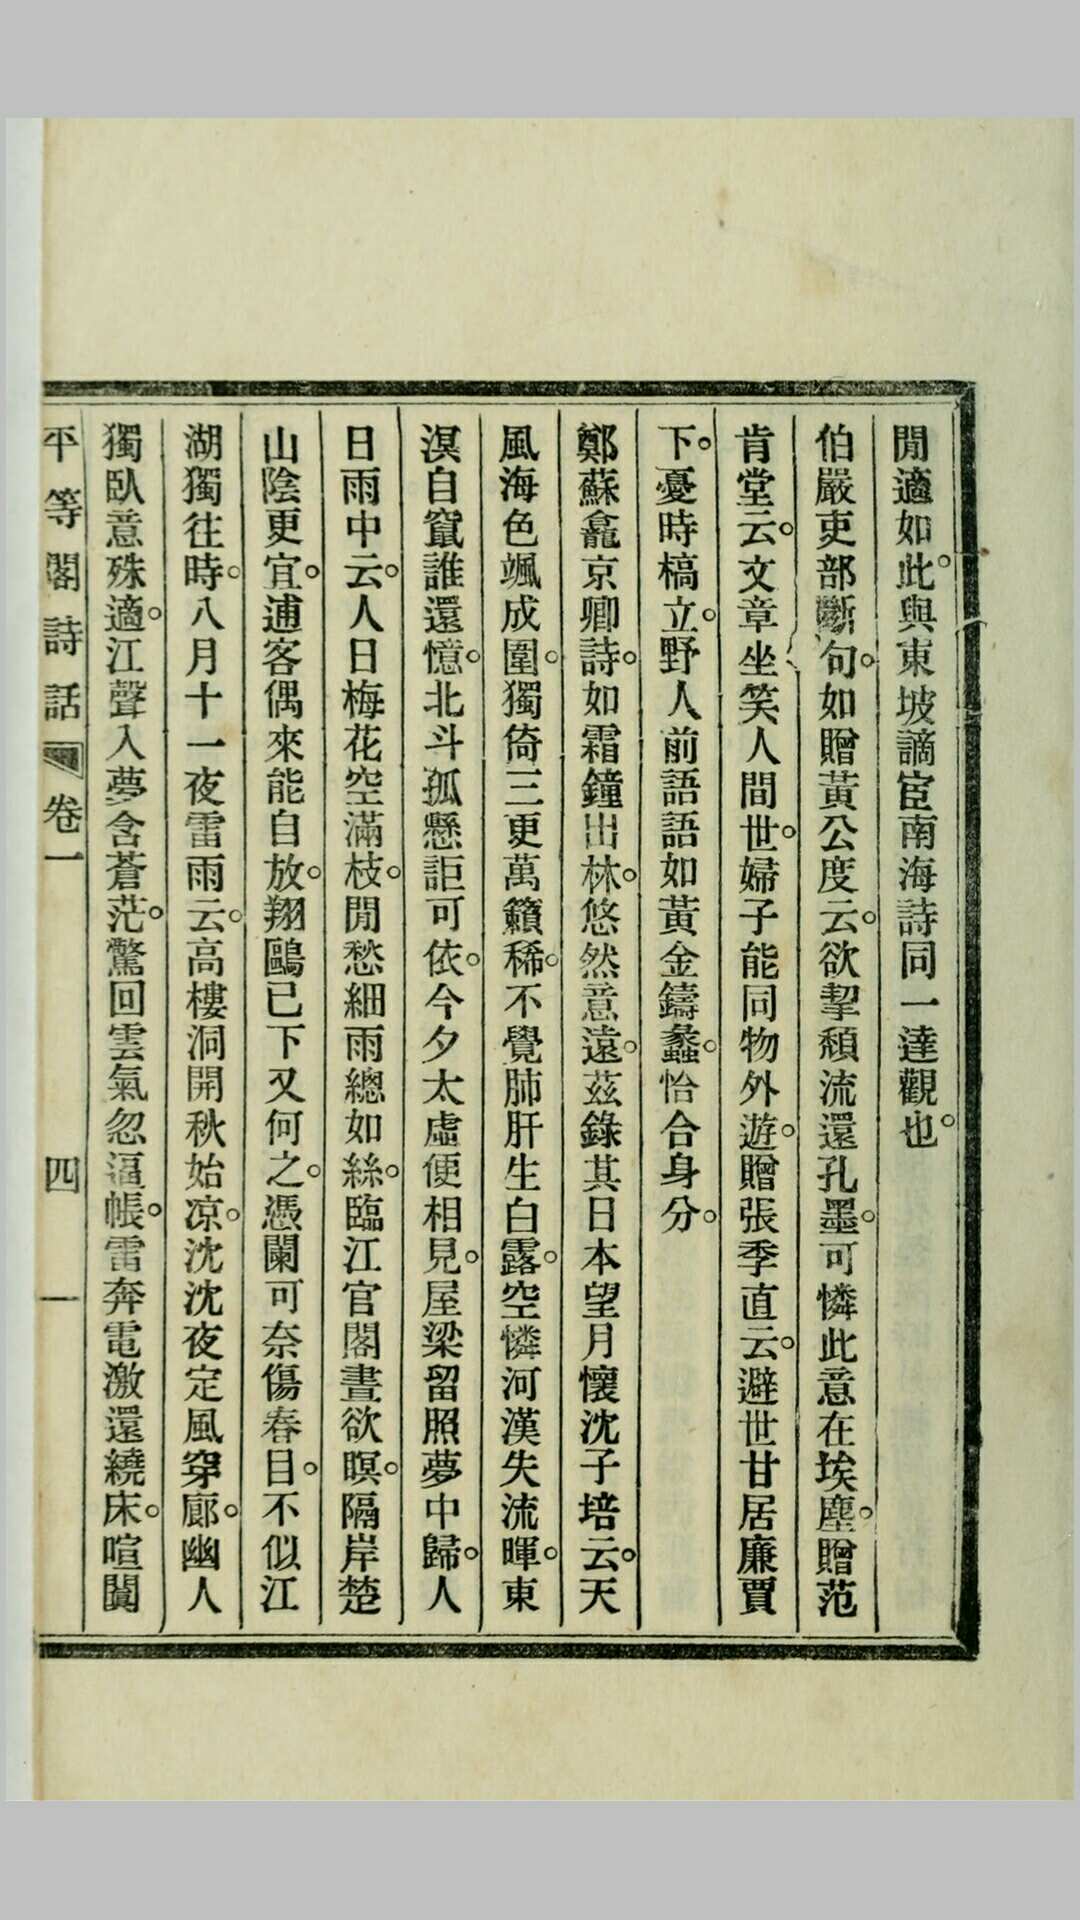 閒適如此。與東坡謫宦南海詩同一達觀也。
伯嚴吏部斷句。如贈黃公度云。欲挈頹流還孔墨。可憐此意在埃塵。贈范
肯堂云。文章坐笑人間世。婦子能同物外遊。贈張季直云。避世甘居廉賈
下。憂時槁立野人前語語如黃金鑄蠡。恰合身分。
鄭蘇龕京卿詩。如霜鐘出林。悠然意遠。茲錄其日本望月懷沈子培云。天
風海色颯成圍。獨倚三更萬籟稀。不覺肺肝生白露。空憐河漢失流暉。東
溟自竄誰還憶。北斗孤懸詎可依。今夕太虛便相見。屋梁留照夢中歸。人
日雨中云。人日梅花空滿枝。閒愁細雨總如絲。臨江官閣晝欲暝。隔岸楚
山陰更宜。逋客偶來能自放。翔鷗已下又何之。憑闌可奈傷春目。不似江
湖獨往時。八月十一夜雷雨云。高樓洞開秋始凉。沈沈夜定風穿廊。幽人
獨臥意殊適。江聲入夢含蒼茫。驚回雲氣忽逼帳。雷奔電激還繞床。喧闐
平等閣詩話 卷一 四 一